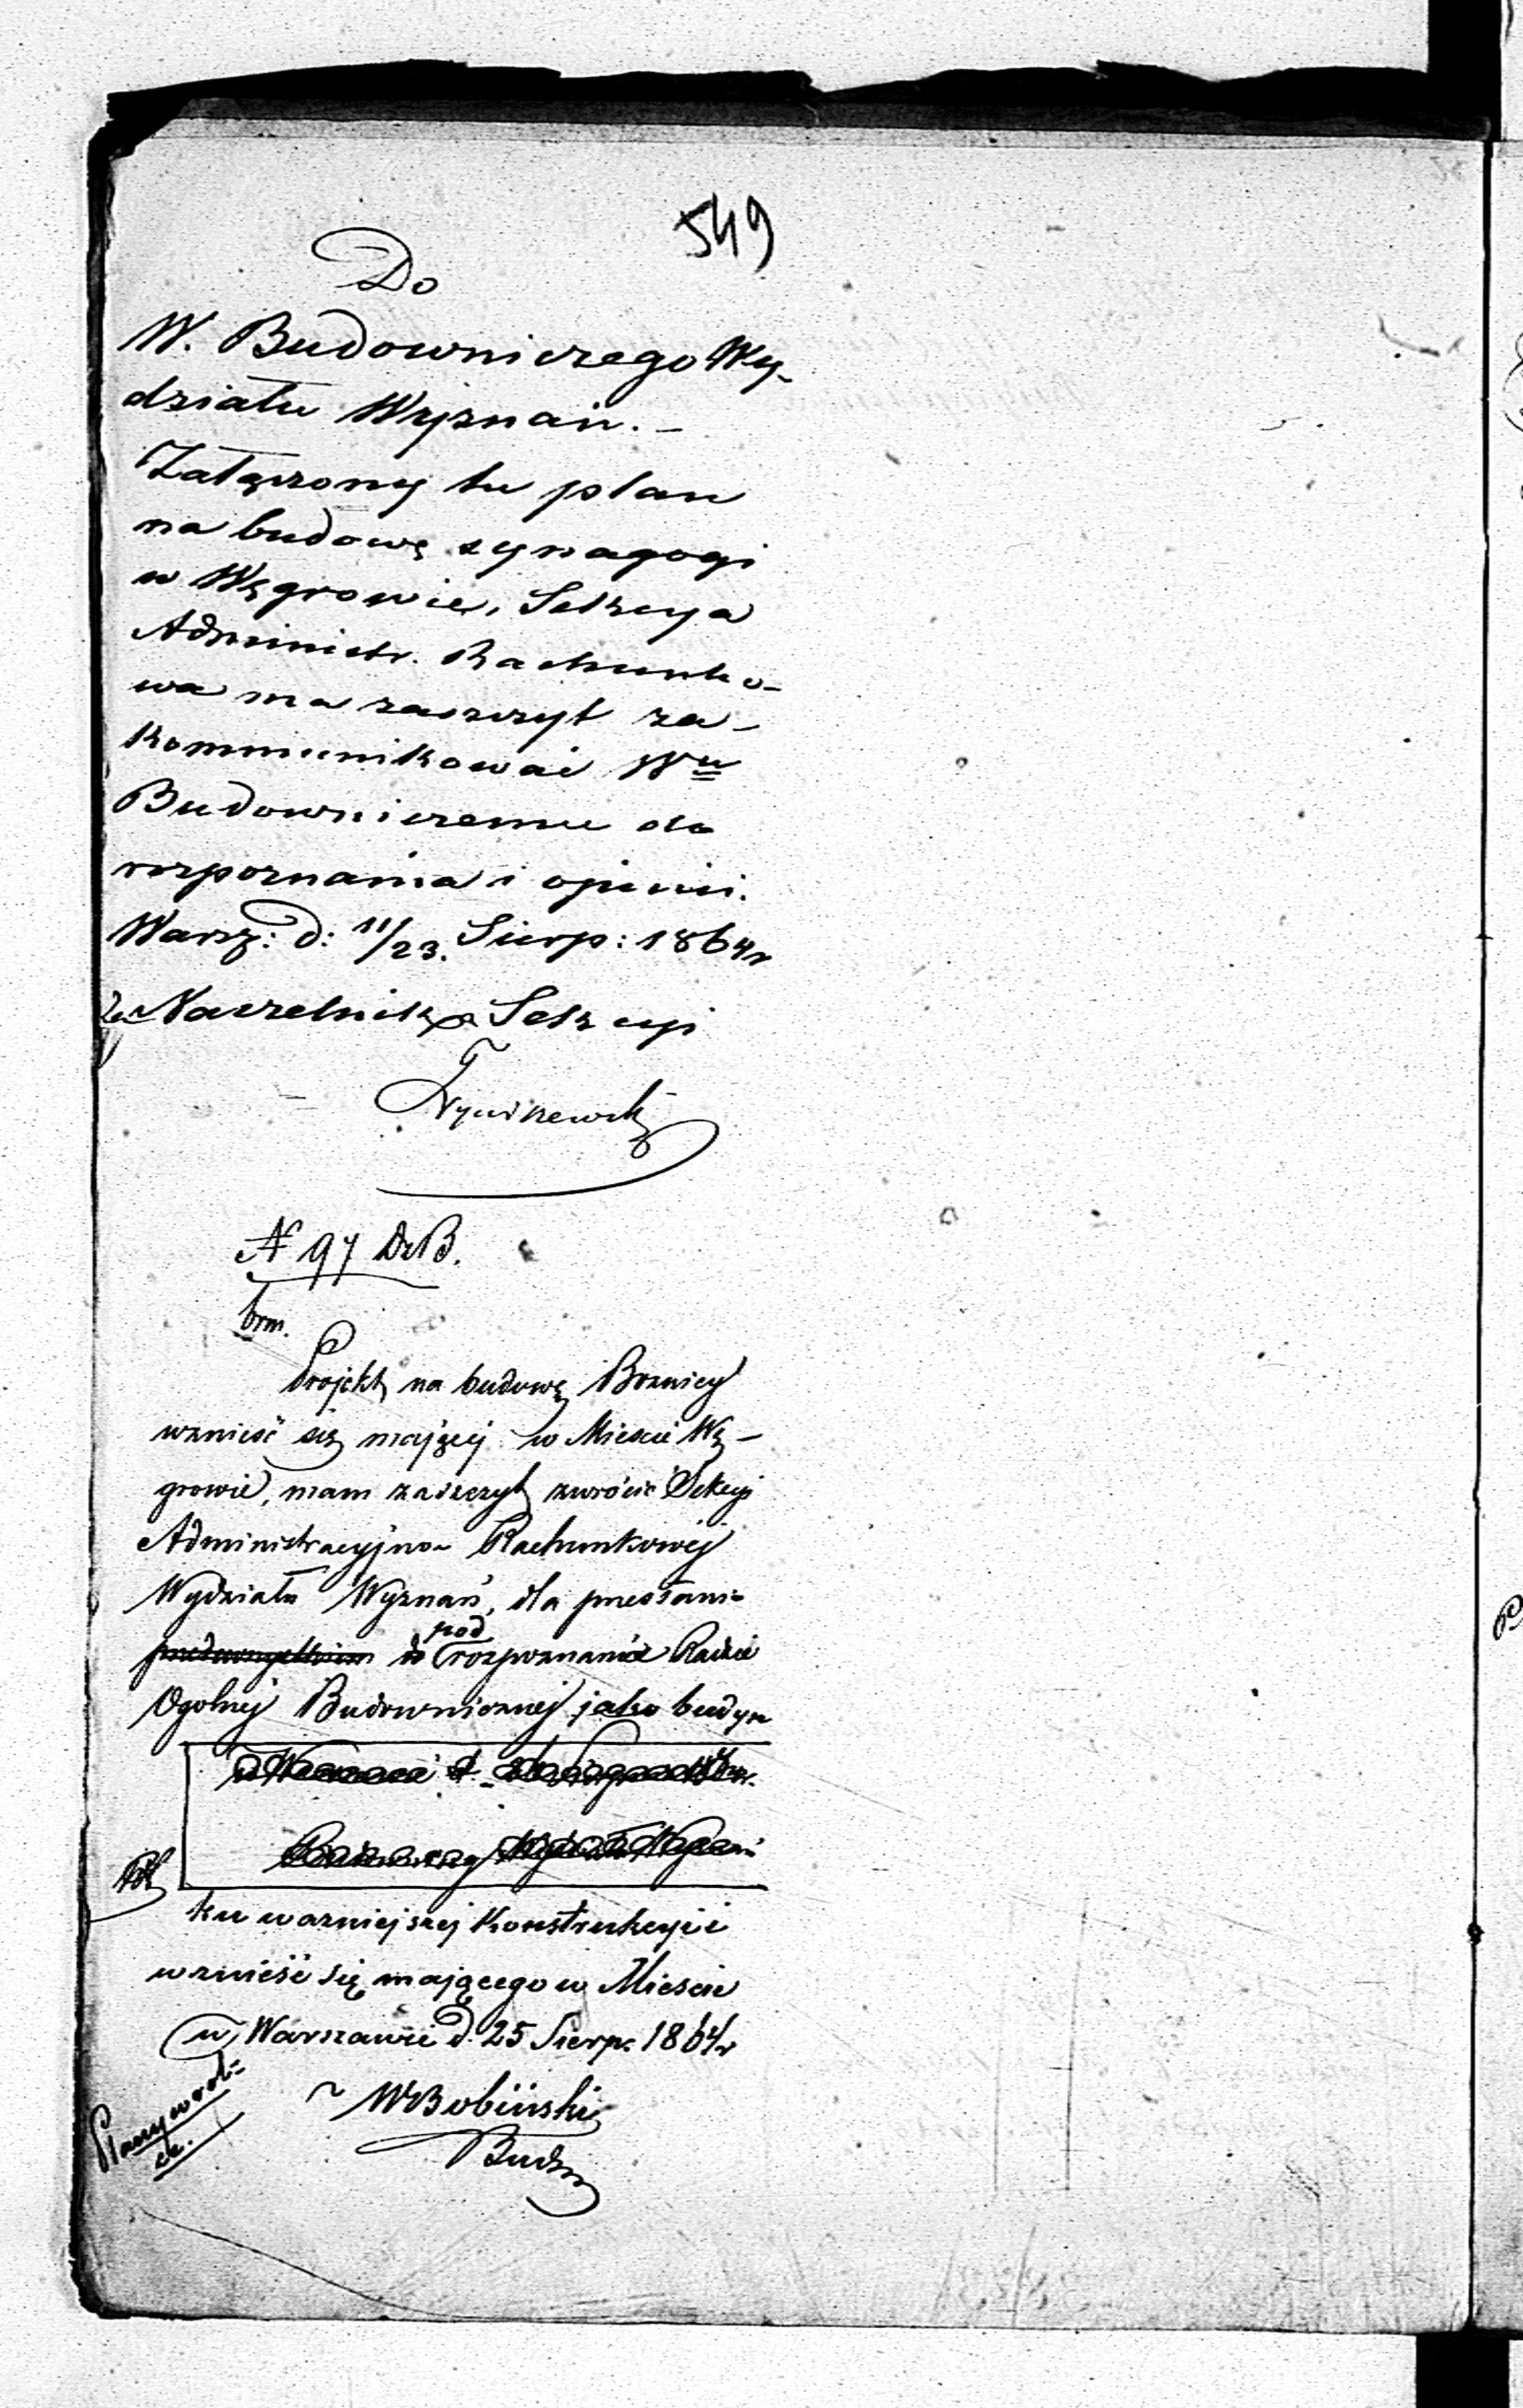 549
Do
W. Budowniczego Wy-
działu Wyznań. -
Załączony tu plan
na budowę synagogi
w Węgrowie, Sekcya
Administr. Rachunko-
wa ma zaszczyt za-
kommunikować Wu
Budowniczemu do
rozpoznania i opinii.
Warsz: d: 11/23. Sierp: 1864r
Naczelnika Sekcyi
N 97 DzB.
brm.
Projekt na budowę Boznicy
wznieść się mającej w Miescie Wę-
growie, mam zaszczyt zwrócić Sekcyi
Administracyjno- Rachunkowej
Wydziału Wyznań, dla przesłania
do pod rozpoznanie Radzie
Ogolnej Budowniczej jako budyn
ku wazniejszej Konstrukcyi i
wznieść się mającego w Miescie
w Warszawie d. 25 Sierp. 1864r
WBobiński
Budn